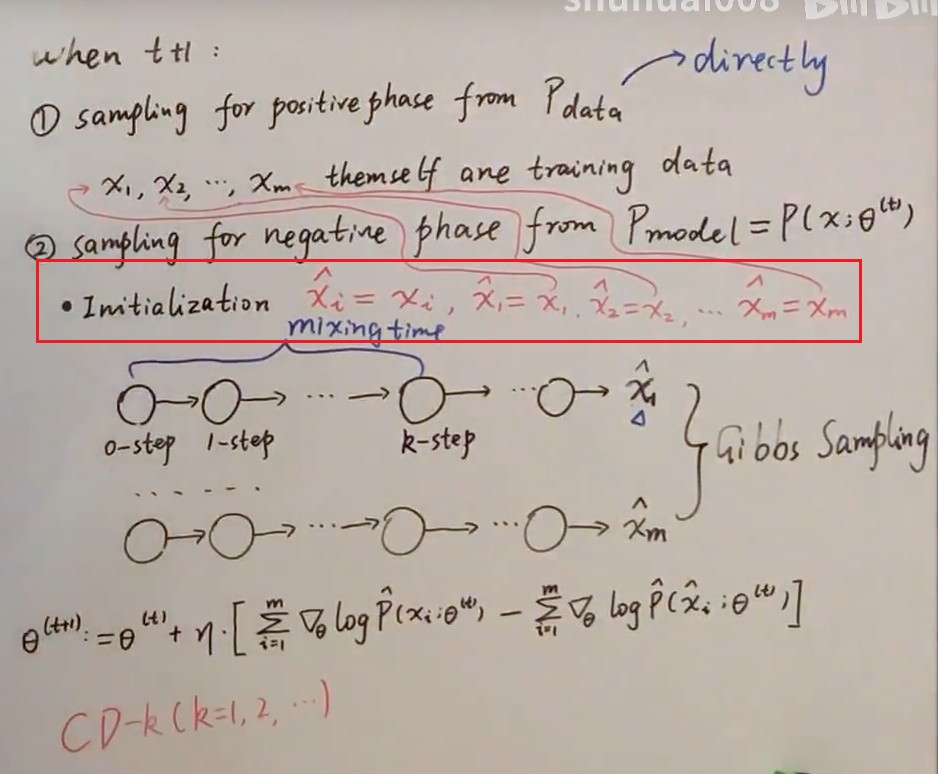 shuhuai008
when t+1 :
directly
① sampling for positive phase from Pdata
x₁, x₂, ..., xₘ themself are training data
② sampling for negative phase from Pmodel = P(x;θ⁽ᵗ⁾)
• Initialization x̂ᵢ = xᵢ, x̂₁ = x₁, x̂₂ = x₂, ... x̂ₘ = xₘ
mixing time
... ... x̂₁
0-step 1-step k-step
Gibbs Sampling
......
... ... x̂ₘ
θ⁽ᵗ⁺¹⁾ := θ⁽ᵗ⁾ + η·[ ∑ᵢ₌₁ᵐ ∇θ log P̂(xᵢ;θ⁽ᵗ⁾) − ∑ᵢ₌₁ᵐ ∇θ log P̂(x̂ᵢ;θ⁽ᵗ⁾) ]
CD-k (k=1, 2, ...)